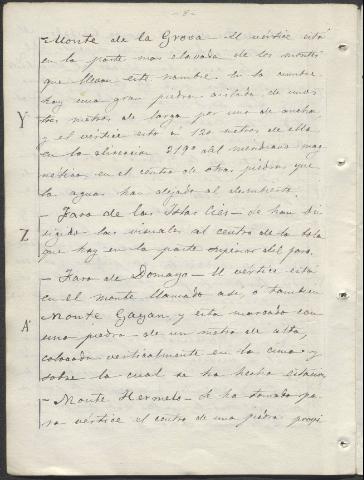 - 8 -
- Monte de la Grova - El vértice está
en la parte mas elevada de los montes
que llevan este nombre. En la cumbre
hay una gran piedra aislada de unos
Y
tres metros de larga por uno de ancha
y el vértice esta a 120 metros de ella
en la alineacion 219º del meridiano mag
netico, en el centro de otras piedras que
las aguas han dejado al descubierto.
Z
- Faro de las Islas Cies - Se han di
rigido las visuales al centro de la bola
que hay en la parte superior del faro.
- Faro de Domayo - El vértice está
en el monte llamado asi, ó tambien
A'
Monte Gagan y esta marcado con
una piedra de un metro de alta,
colocada verticalmente en la cima y
sobre la cual se ha hecho estacion
- Monte Hermelo - Se ha tomado pa
ra vértice el centro de una piedra proxi